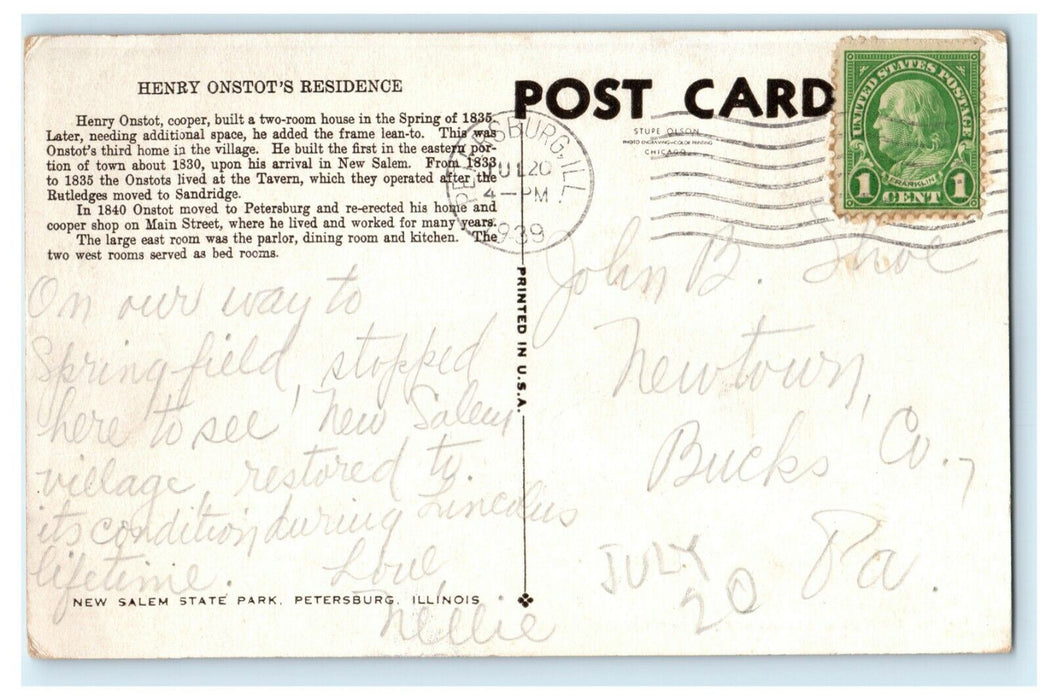 HENRY ONSTOT'S RESIDENCE
Henry Onstot, cooper, built a two-room house in the Spring of 1835.
Later, needing additional space, he added the frame lean-to. This was
Onstot's third home in the village. He built the first in the eastern por-
tion of town about 1830, upon his arrival in New Salem. From 1833
to 1835 the Onstots lived at the Tavern, which they operated after the
Rutledges moved to Sandridge.
In 1840 Onstot moved to Petersburg and re-erected his home and
cooper shop on Main Street, where he lived and worked for many years.
The large east room was the parlor, dining room and kitchen. The
two west rooms served as bed rooms.
On our way to
Springfield, stopped
here to see New Salem
village, restored to
its condition during Lincolns
lifetime.
Love,
Nellie
NEW SALEM STATE PARK, PETERSBURG, ILLINOIS
PRINTED IN U.S.A.
POST CARD
STUPE OLSON
PHOTO ENGRAVING—COLOR PRINTING
CHICAGO
PETERSBURG, ILL.
JUL 20
4-PM
1939
UNITED STATES POSTAGE
FRANKLIN
1 CENT 1
John B.
Newtown,
Bucks Co.,
Pa.
JULY
20